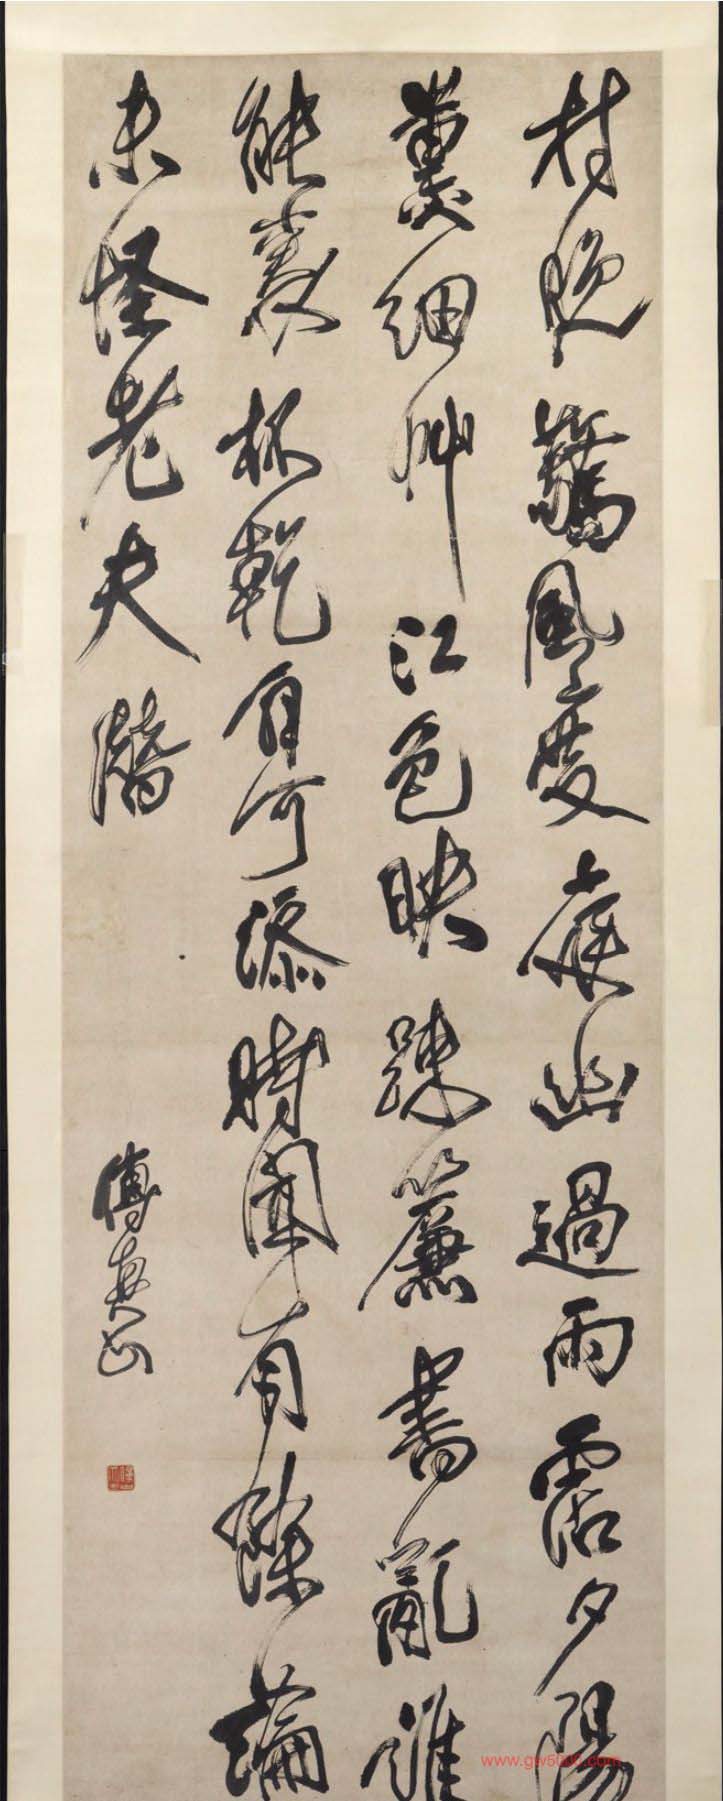 村晚驚風度庭幽過雨霑夕陽
薰細艸江色映踈簾書亂誰
能袠杯乾自可添時聞有餘論
未怪老夫潛
傅真山
www.gw5000.com